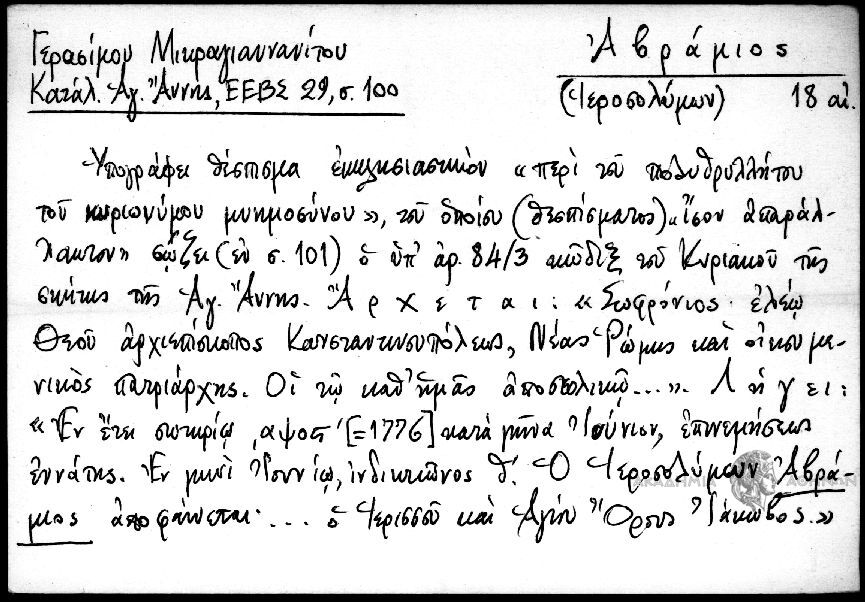 Γερασίμου Μικραγιαννανίτου
Κατάλ. Ἁγ. Ἄννης, ΕΕΒΣ 29, σ. 100
Ἀβράμιος
(Ἱεροσολύμων) 18 αἰ.
Ὑπογράφει θέσπισμα ἐκκλησιαστικὸν «περὶ τοῦ πολυθρυλλήτου
τοῦ κυριωνύμου μνημοσύνου», τοῦ ὁποίου (θεσπίσματος) «Ἴσον ἀπαράλ-
λακτον» σῴζει (ἐν σ. 101) ὁ ὑπ' ἀρ. 84/3 κῶδιξ τοῦ Κυριακοῦ τῆς
σκήτης τῆς Ἁγ. Ἄννης. Ἄρχεται: «Σωφρόνιος ἐλέῳ
Θεοῦ ἀρχιεπίσκοπος Κωνσταντινουπόλεως, Νέας Ῥώμης καὶ οἰκουμε-
νικὸς πατριάρχης. Οἱ τῷ καθ' ἡμᾶς ἀποστολικῷ...». Λήγει:
«Ἐν ἔτει σωτηρίῳ ͵αψοϛ' [=1776] κατὰ μῆνα Ἰούνιον, ἐπινεμήσεως
ἐννάτης. Ἐν μηνὶ Ἰουνίῳ, ἰνδικτιῶνος θ'. Ὁ Ἱεροσολύμων Ἀβρά-
μιος ἀποφαίνεται.... ὁ Ἱερισσοῦ καὶ Ἁγίου Ὄρους Ἰάκωβος.»
ΑΚΑΔΗΜΙΑ ΑΘΗΝΩΝ